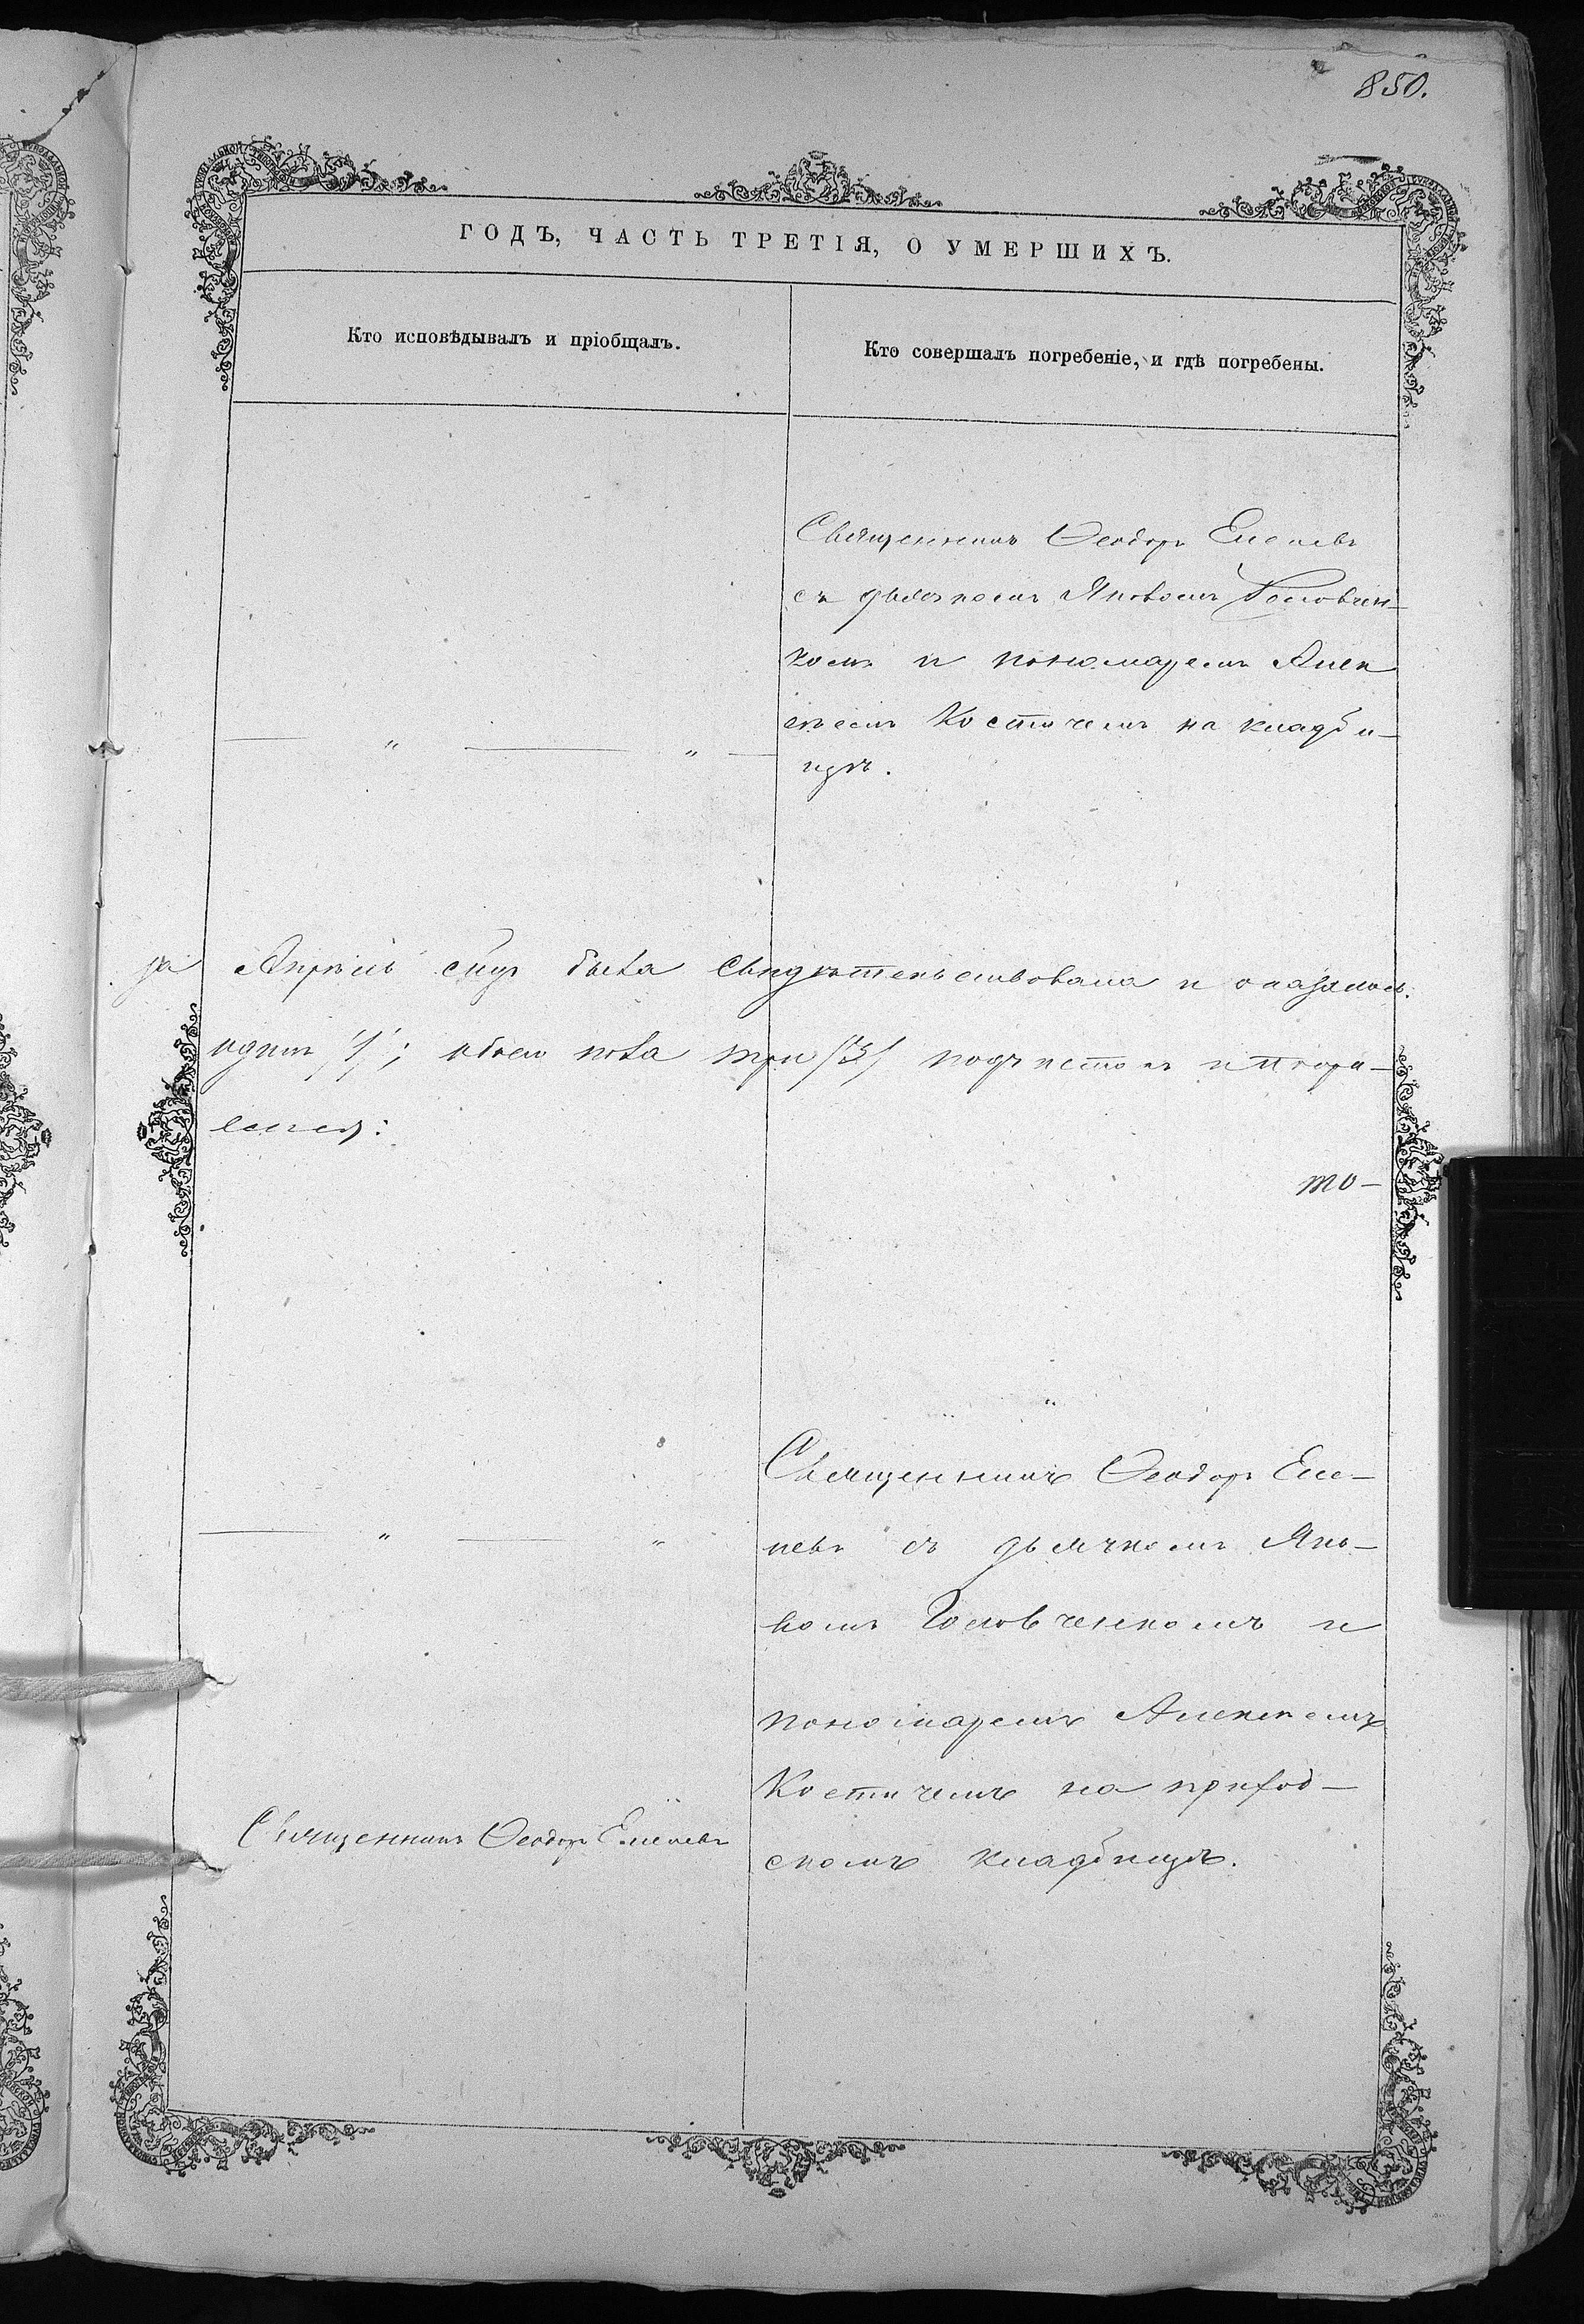 850.
ГОДЪ, ЧАСТЬ ТРЕТІЯ, О УМЕРШИХЪ.
Кто исповѣдывалъ и пріобщалъ.
Кто совершалъ погребеніе, и гдѣ погребены.
Священникъ Ѳеодоръ
съ дьячкомъ Яковомъ Головчен-
комъ и пономаремъ Алек
сѣемъ Костичемъ на кладби-
щѣ.
за Апрѣль была свидѣтельствована и оказалось
одинъ /1/; обоего пола три /3/
то-
Священникъ Ѳеодоръ
съ дьячкомъ Яко-
вомъ Головченкомъ и
пономаремъ Алексѣемъ
Костичемъ на приход-
скомъ кладбищѣ.
Священникъ Ѳеодоръ